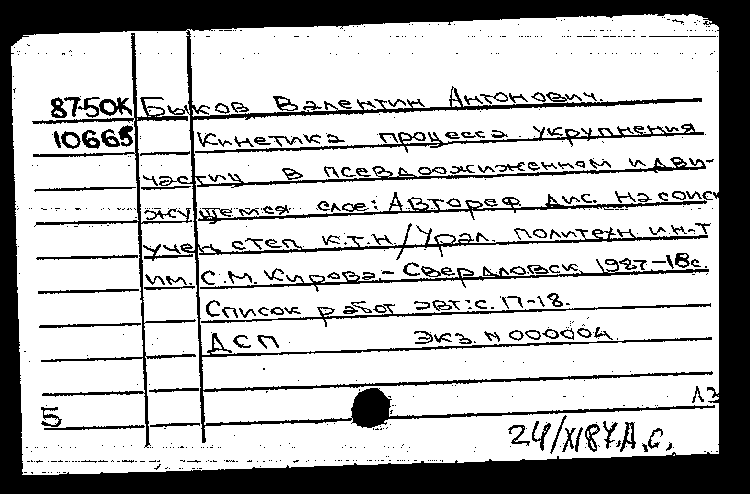 87-50К Быков, Валентин Антонович.
10665 Кинетика процесса укрупнения
частиц в псевдоожиженном и дви-
жущемся слое: Автореф. дис. на соиск
учен. степ. к.т.н./Урал. политехн. ин-т
им. С.М. Кирова.- Свердловск, 1987.-18с.
Список работ авт.: с. 17-18.
ДСП Экз. N 000004
5
24/XI87.